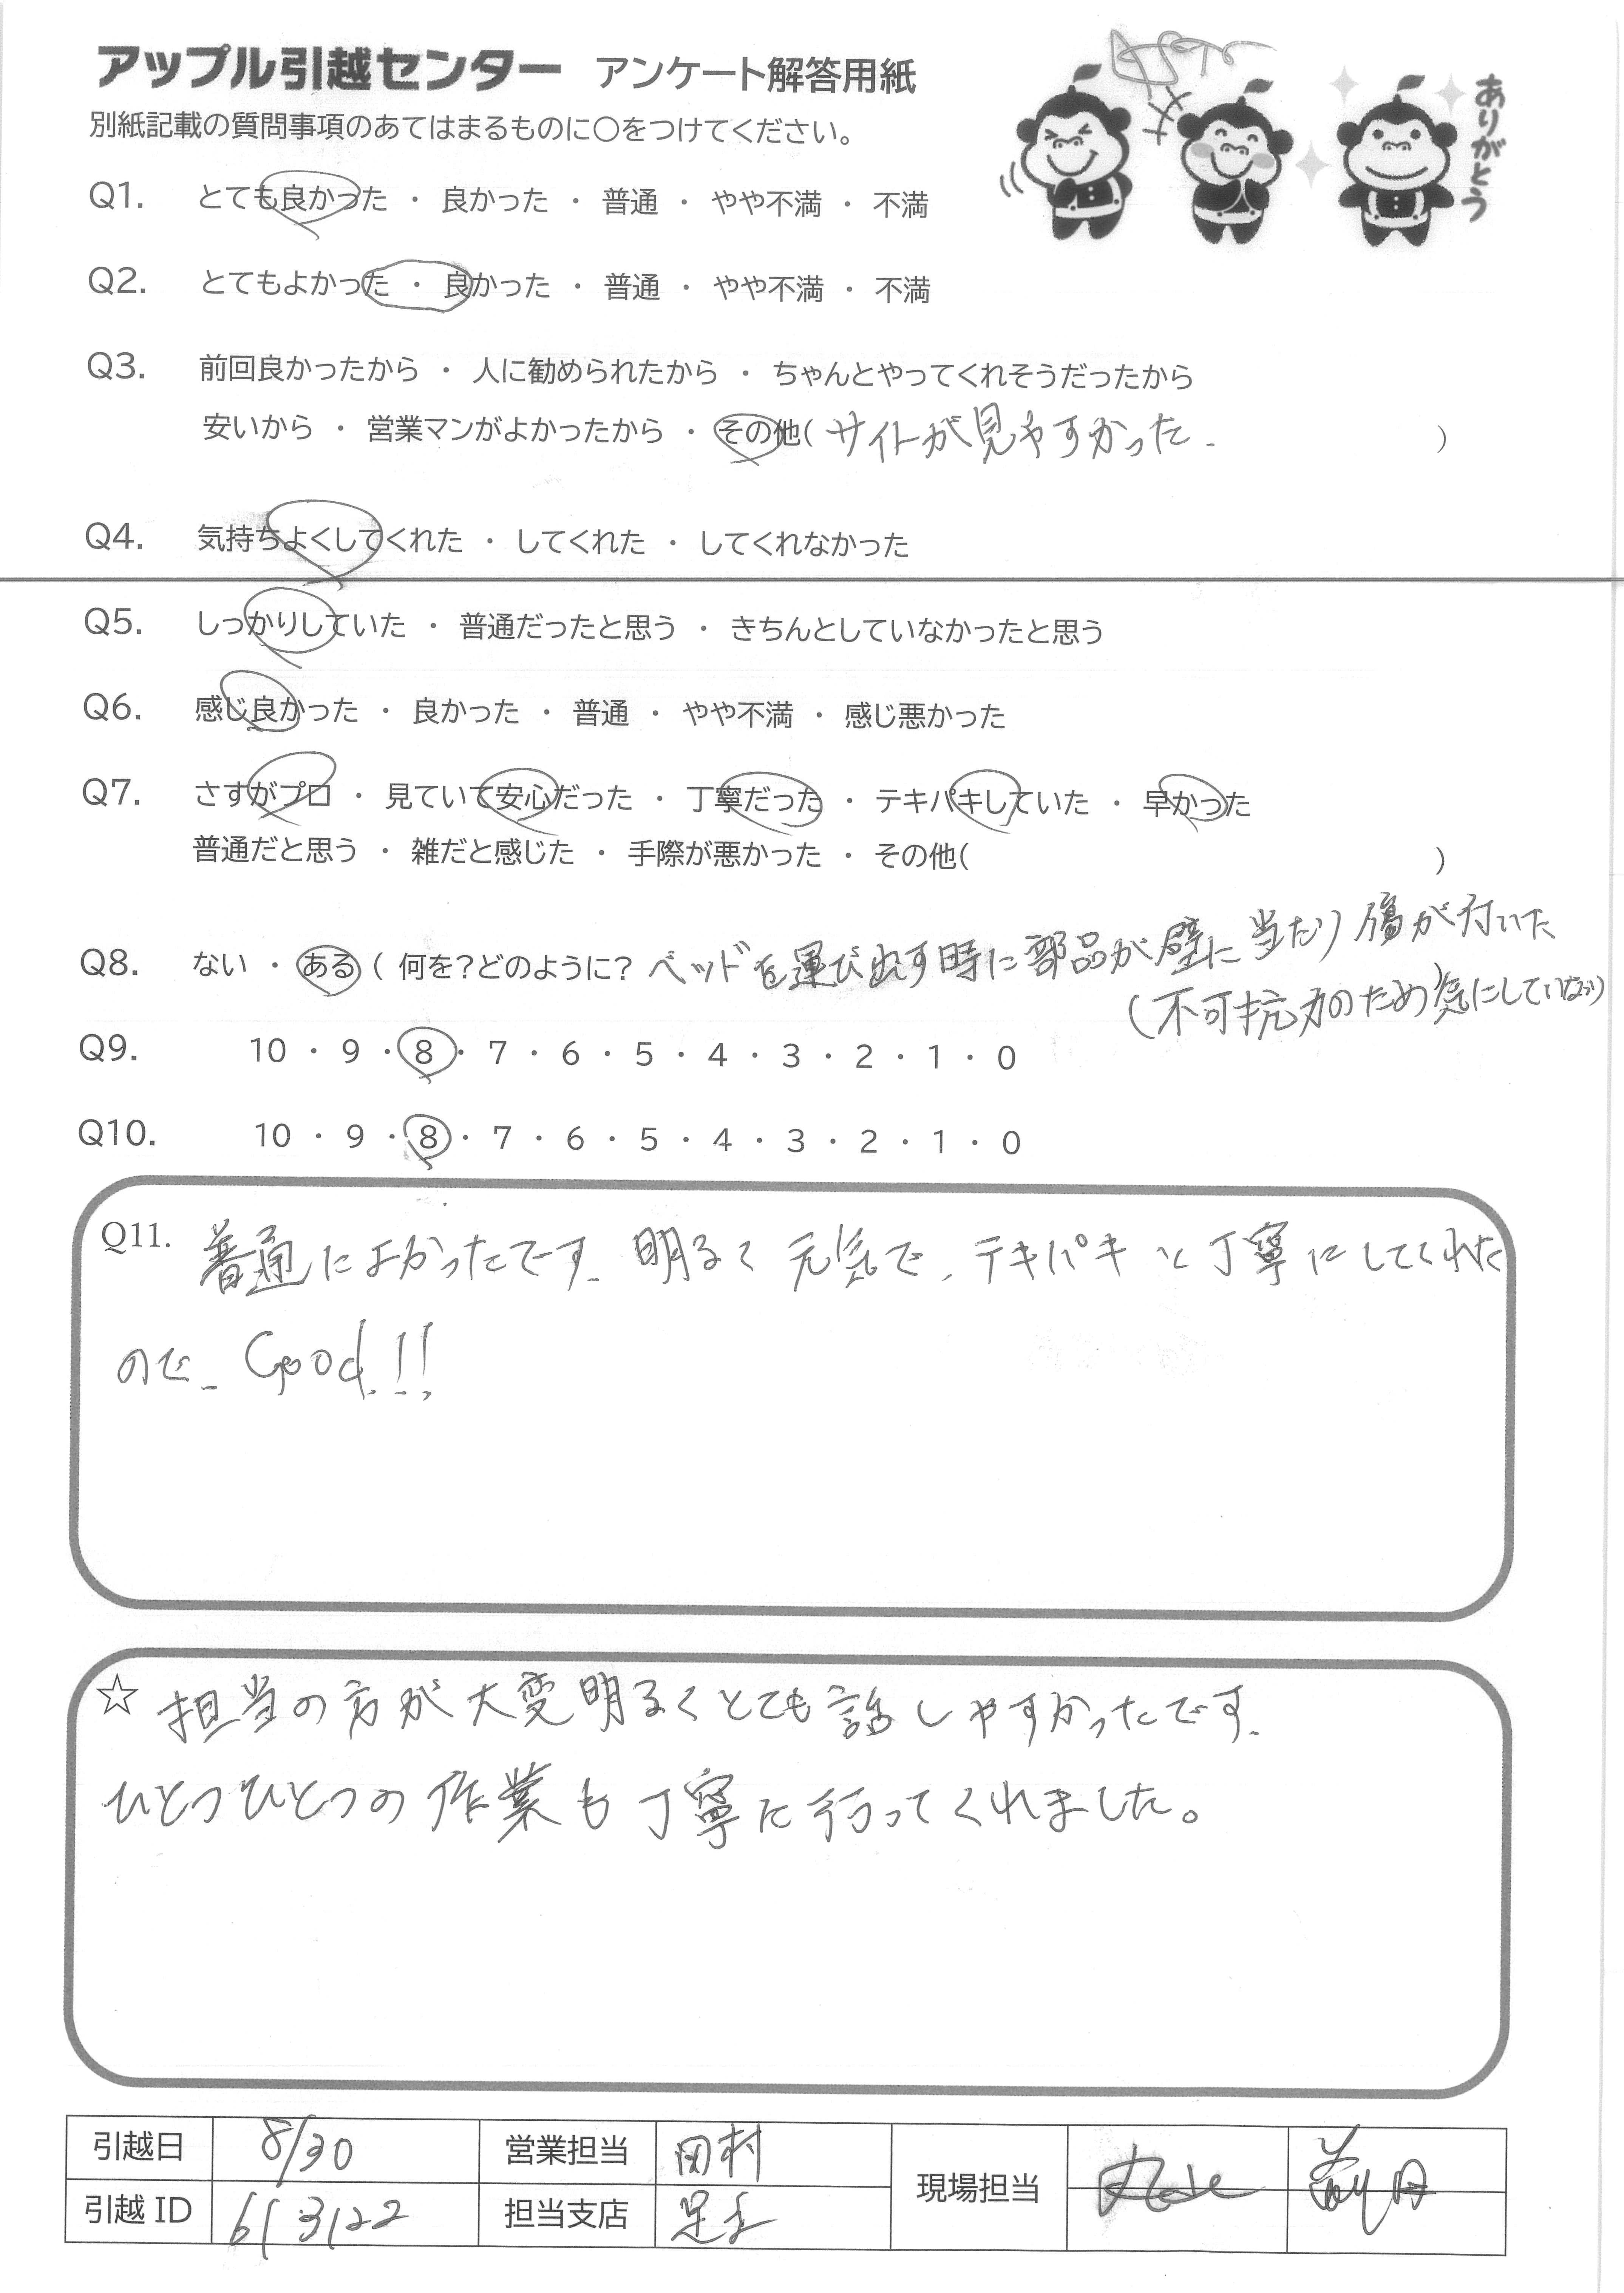 アップル引越センター アンケート解答用紙
ありがとう
別紙記載の質問事項のあてはまるものに○をつけてください。
Q1. とても良かった ・ 良かった ・ 普通 ・ やや不満 ・ 不満
Q2. とてもよかった ・ 良かった ・ 普通 ・ やや不満 ・ 不満
Q3. 前回良かったから ・ 人に勧められたから ・ ちゃんとやってくれそうだったから
安いから ・ 営業マンがよかったから ・ その他( サイトが見やすかった. )
Q4. 気持ちよくしてくれた ・ してくれた ・ してくれなかった
Q5. しっかりしていた ・ 普通だったと思う ・ きちんとしていなかったと思う
Q6. 感じ良かった ・ 良かった ・ 普通 ・ やや不満 ・ 感じ悪かった
Q7. さすがプロ ・ 見ていて安心だった ・ 丁寧だった ・ テキパキしていた ・ 早かった
普通だと思う ・ 雑だと感じた ・ 手際が悪かった ・ その他( )
Q8. ない ・ ある ( 何を?どのように? ベッドを運び出す時に部品が壁に当たり傷が付いた )
(不可抗力のため気にしていない)
Q9. 10 ・ 9 ・ 8 ・ 7 ・ 6 ・ 5 ・ 4 ・ 3 ・ 2 ・ 1 ・ 0
Q10. 10 ・ 9 ・ 8 ・ 7 ・ 6 ・ 5 ・ 4 ・ 3 ・ 2 ・ 1 ・ 0
Q11. 普通によかったです. 明るく元気で、テキパキと丁寧にしてくれた
ので、Good!!
☆ 担当の方が大変明るくとても話しやすかったです.
ひとつひとつの作業も丁寧に行ってくれました。
引越日 8/30 営業担当 田村 現場担当
引越ID 613122 担当支店 足立